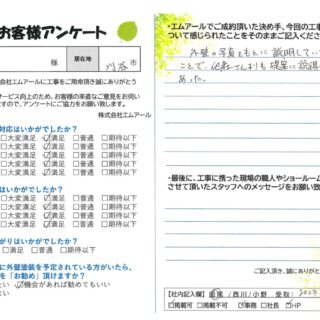 お客様アンケート
様 居在地 川
会社エムアールに工事をご用命頂き誠にありがとう
サービス向上のため、お客様の率直なご意見をお伺い
ますので、アンケートにご協力をお願い致します。
株式会社エムアール
対応はいかがでしたか？
□大変満足 ☑満足 □普通 □期待以下
□大変満足 ☑満足 □普通 □期待以下
□大変満足 ☑満足 □普通 □期待以下
□大変満足 ☑満足 □普通 □期待以下
はいかがでしたか？
□大変満足 ☑満足 □普通 □期待以下
□大変満足 ☑満足 □普通 □期待以下
□大変満足 ☑満足 □普通 □期待以下
□大変満足 ☑満足 □普通 □期待以下
がりはいかがでしたか？
満足 □普通 □期待以下
に外壁塗装を予定されている方がいたら、
を「お勧め」頂けますか？
たい ☑機会があれば勧めてもいい
い
・エムアールでご成約頂いた決め手、今回の工事
ついて感じられたことをそのままご記入ください
外壁の写真とともに説明してい
ことで、他社さんよりも提案に説得
あった。
・最後に、工事に携った現場の職人やショールーム
させて頂いたスタッフへのメッセージをお願い致
ご記入頂き、誠にありがと
【社内記入欄】 /西川/小野 受取: 2023
☑掲載可 □掲載不可 ☑事務 □社長 ☑HP